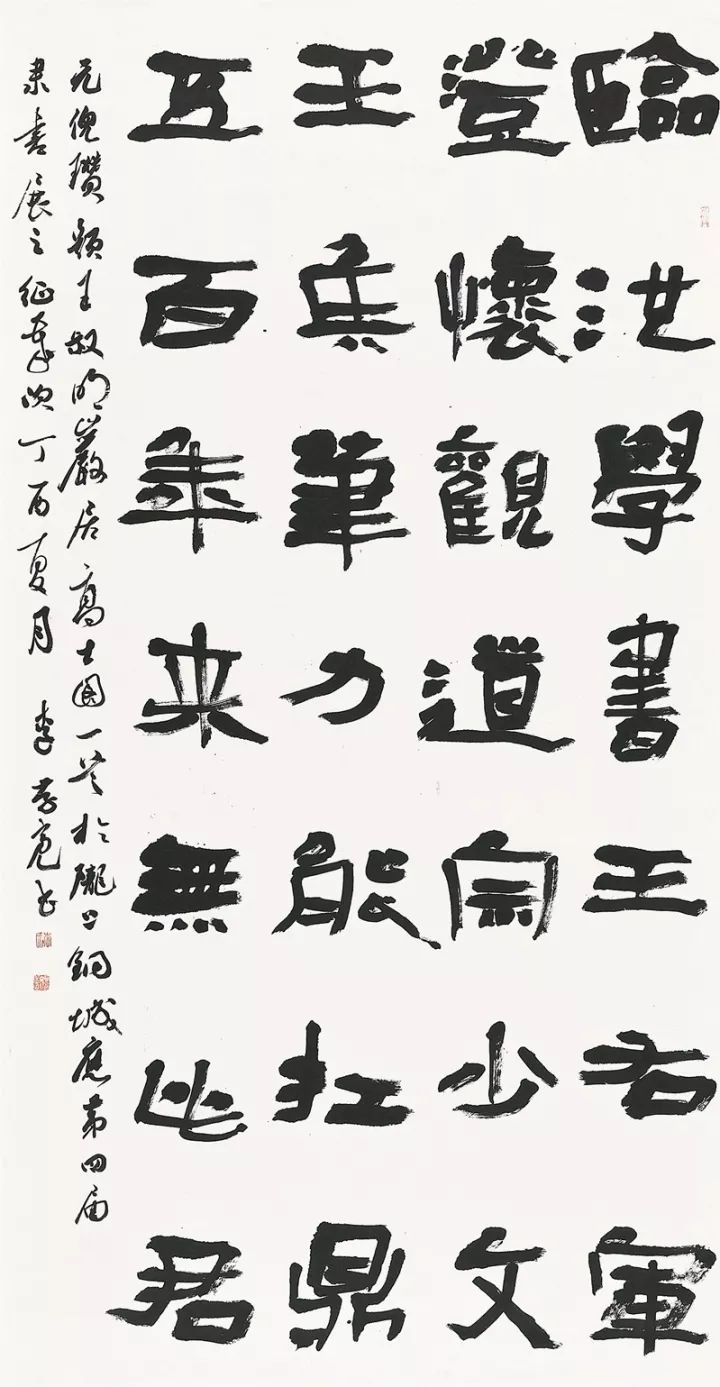 臨池學書王右軍
澄懷觀道宗少文
王侯筆力能扛鼎
五百年来無此君
元倪瓚題王叔明巖居高士圖一首於隴上銅城應第四屆
隶書展之征歲次丁酉夏月 李亮书